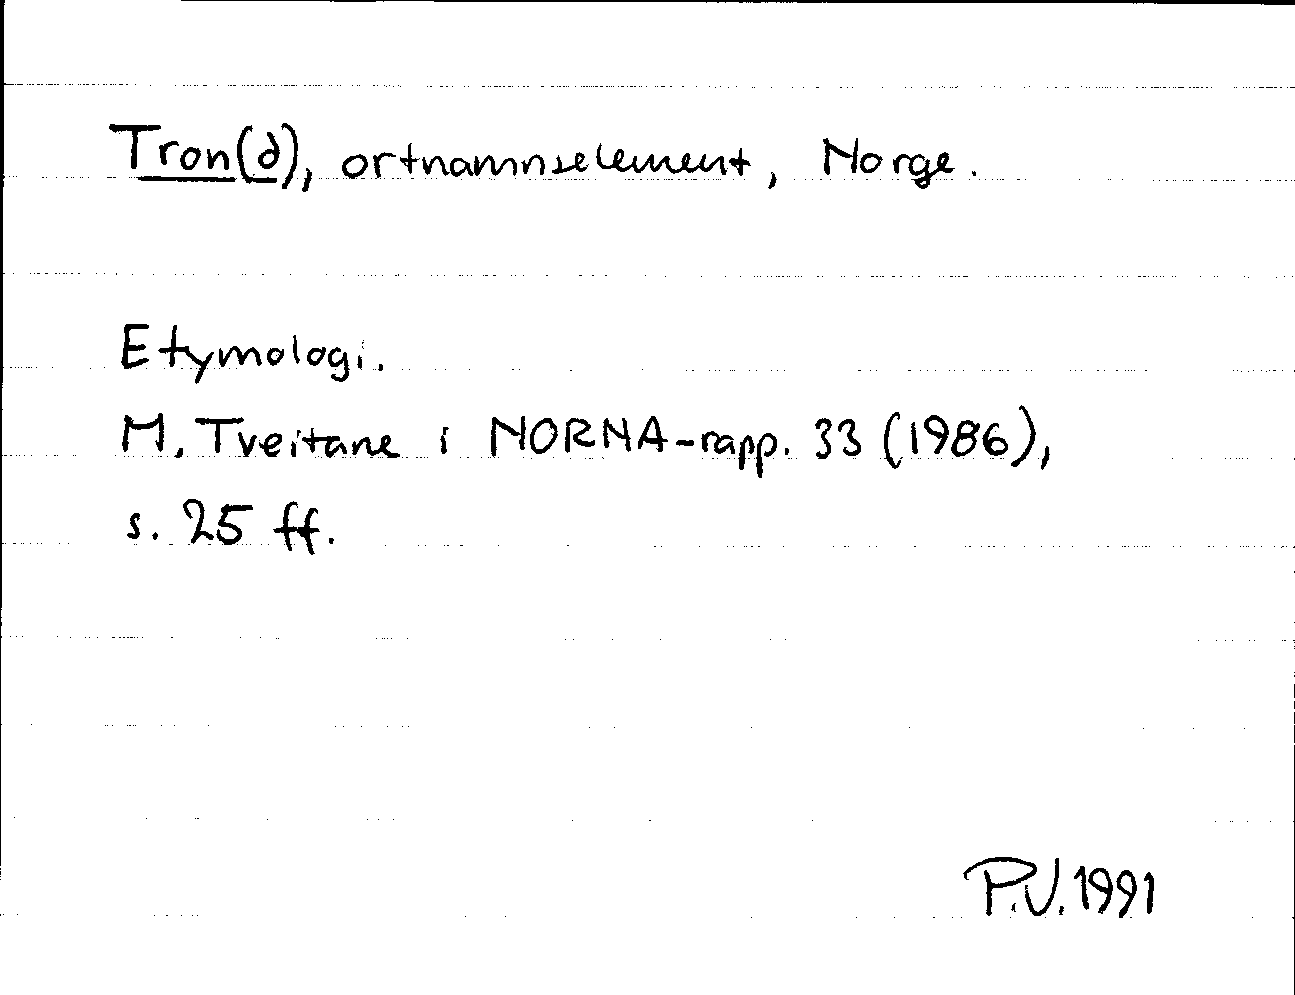 Tron(d), ortnamnselement, Norge.
Etymologi.
M. Tveitane i NORNA-rapp. 33 (1986),
s. 25 ff.
P.V. 1991